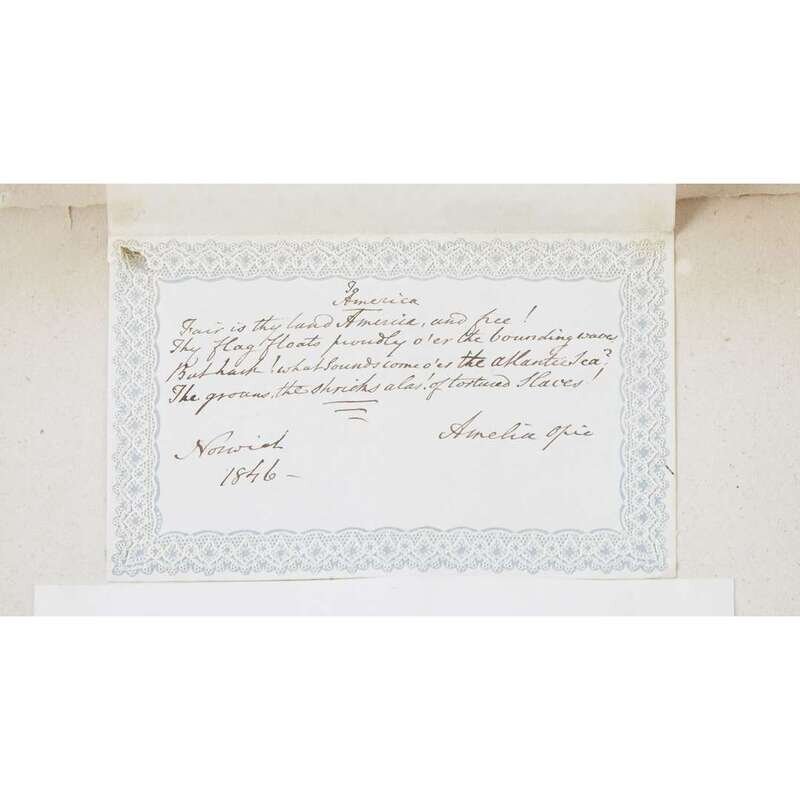 To
America
Fair is thy land America, and free!
Thy flag floats proudly o'er the bounding waves
But hark! what sounds come o'er the atlantic Sea?
The groans, the shrieks alas! of tortured Slaves!
Norwich
Amelia Opie
1846 –